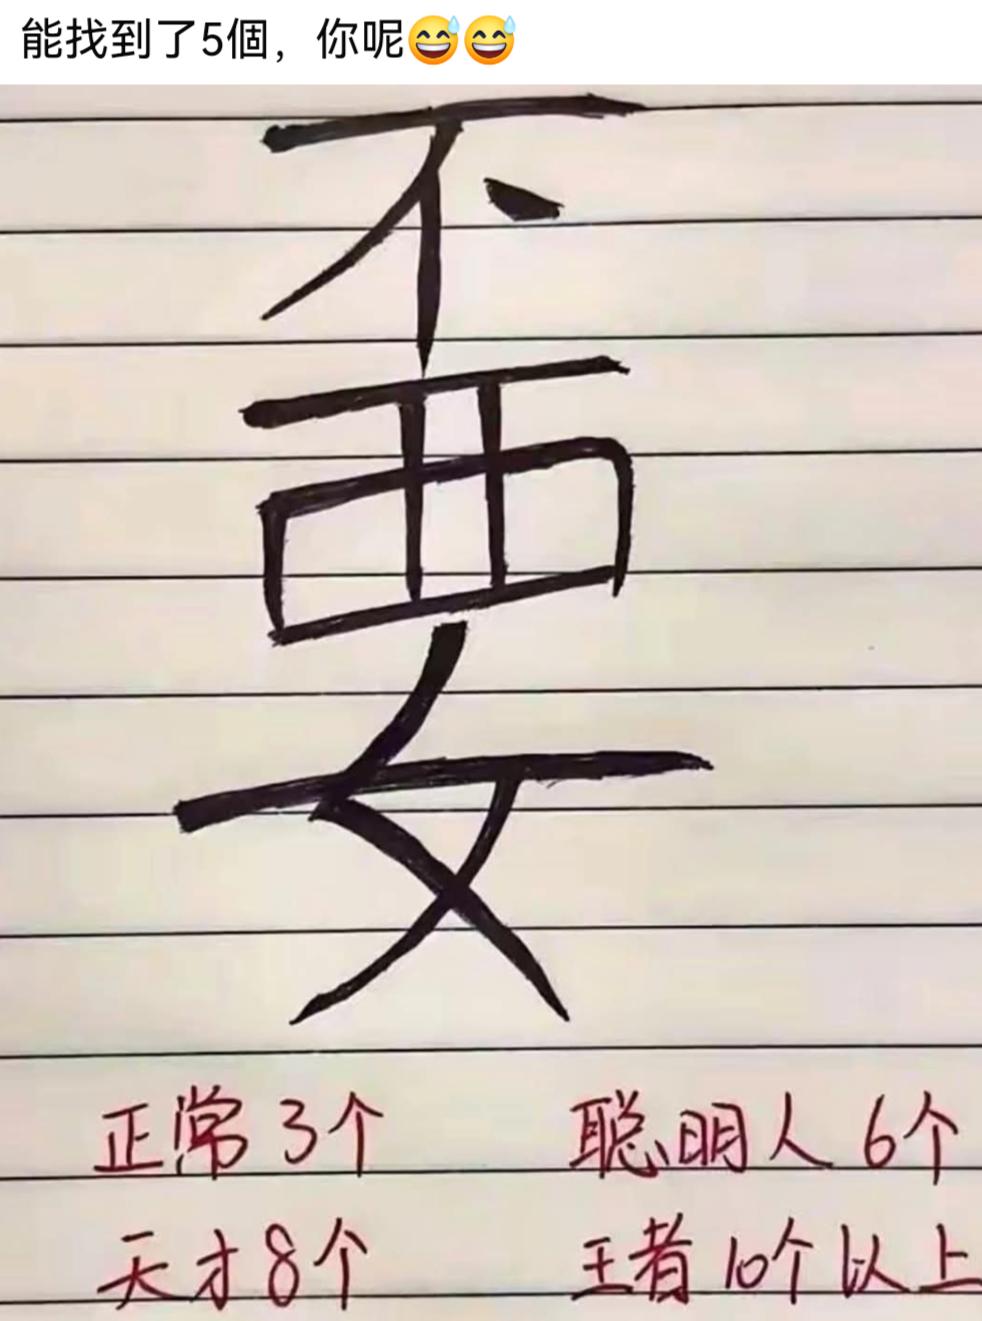 能找到了5個，你呢😅😅
不
覀
女
正常3个 聪明人6个
天才8个 王者10个以上